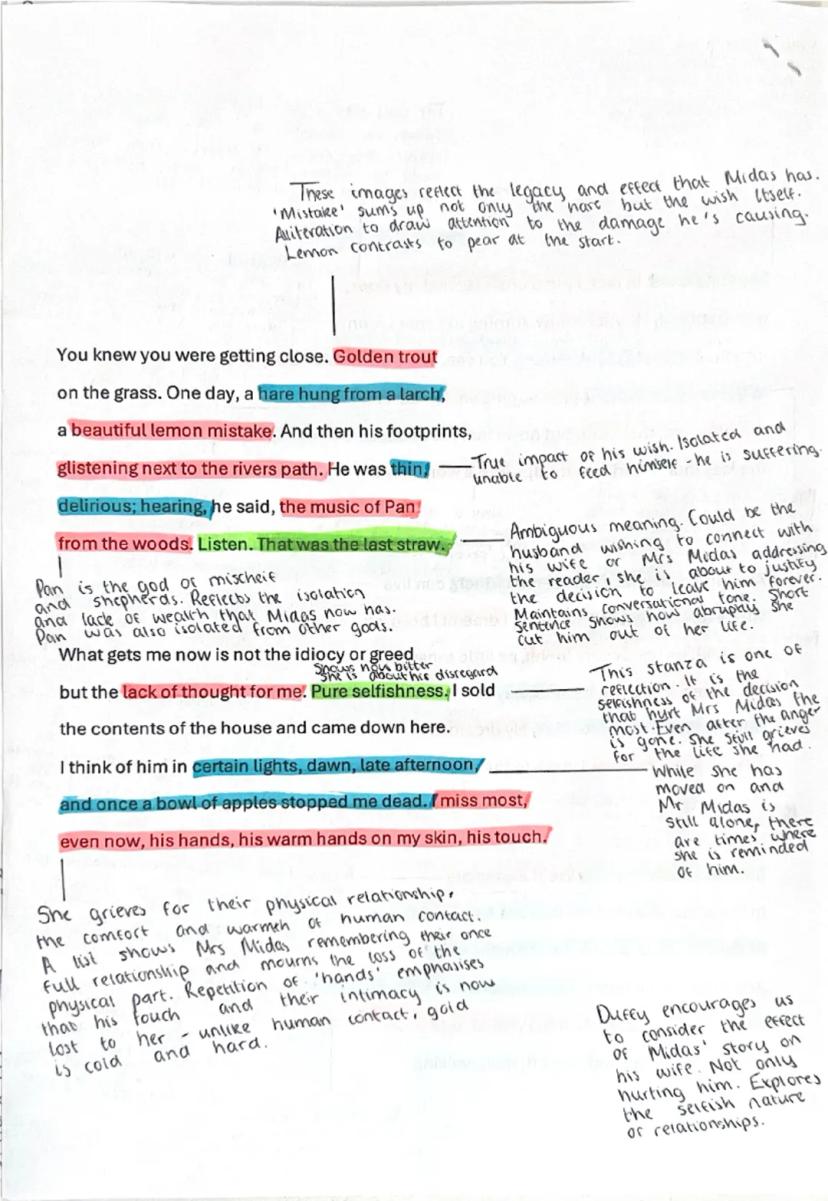 These images reflect the legacy and effect that Midas has.
'Mistake' sums up not only the hare but the wish itself.
Aliteration to draw attention to the damage he's causing.
Lemon contrasts to pear at the start.
You knew you were getting close. Golden trout
on the grass. One day, a hare hung from a larch,
a beautiful lemon mistake. And then his footprints,
glistening next to the rivers path. He was thin,
True impact of his wish. Isolated and
unable to feed himself - he is suffering.
delirious; hearing, he said, the music of Pan
from the woods. Listen. That was the last straw.
Ambiguous meaning. Could be the
husband wishing to connect with
his wife or Mrs Midas addressing
the reader, she is about to justify
the decision to leave him forever.
Maintains conversational tone. Short
sentence shows how abruptly she
cut him out of her life.
Pan is the god of mischeif
and shepherds. Reflects the isolation
and lack of wealth that Midas now has.
Pan was also isolated from other gods.
What gets me now is not the idiocy or greed
shows how bitter
she is about his disregard
but the lack of thought for me. Pure selfishness. I sold
the contents of the house and came down here.
This stanza is one of
reflection. It is the
selfishness of the decision
that hurt Mrs Midas the
most. Even after the anger
is gone. She still grieves
for the life she had.
I think of him in certain lights, dawn, late afternoon,
and once a bowl of apples stopped me dead. I miss most,
even now, his hands, his warm hands on my skin, his touch.
While she has
moved on and
Mr Midas is
still alone, there
are times where
she is reminded
of him.
She grieves for their physical relationship,
the comfort and warmth of human contact.
A list shows Mrs Midas remembering their once
full relationship and mourns the loss of the
physical part. Repetition of 'hands' emphasises
that his touch and their intimacy is now
lost to her - unlike human contact, gold
is cold and hard.
Duffy encourages us
to consider the effect
of Midas' story on
his wife. Not only
hurting him. Explores
the selfish nature
of relationships.